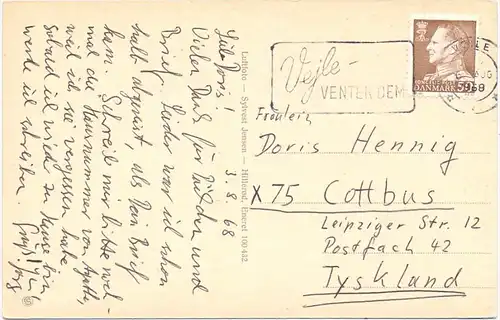 3.8.68
Liebe Doris!
Vielen Dank für Bildchen und
Brief. Leider war ich schon
halb abgereist, als Dein Brief
kam. Schreib mir bitte noch-
mal die Hausnummer von Agathe,
weil ich sie vergessen habe.
Sobald ich wieder zu Hause bin,
werde ich schreiben.
Gruß
Luftfoto - Sylvest Jensen - Hillerød. Eneret 100432.
Vejle-
VENTER DEM
VEJLE
DANMARK
Fräulein
Doris Hennig
X75 Cottbus
Leipziger Str. 12
Postfach 42
Tyskland